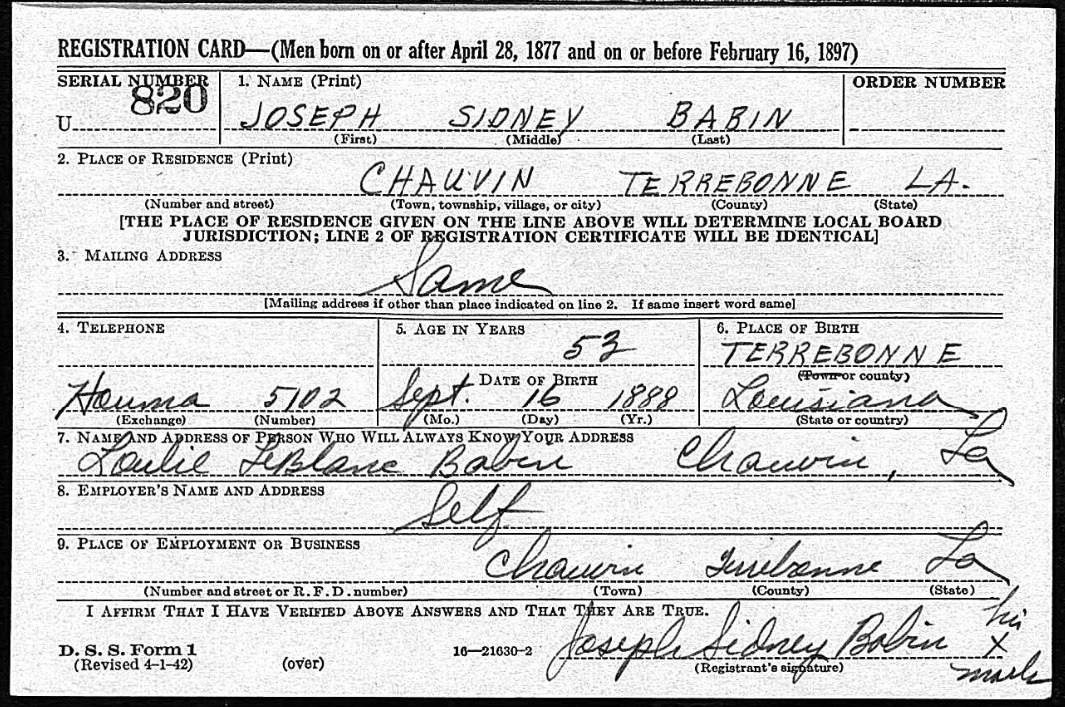 REGISTRATION CARD—(Men born on or after April 28, 1877 and on or before February 16, 1897)
SERIAL NUMBER 1. NAME (Print) ORDER NUMBER
U 820 JOSEPH SIDNEY BABIN
(First) (Middle) (Last)
2. PLACE OF RESIDENCE (Print)
CHAUVIN TERREBONNE LA.
(Number and street) (Town, township, village, or city) (County) (State)
[THE PLACE OF RESIDENCE GIVEN ON THE LINE ABOVE WILL DETERMINE LOCAL BOARD
JURISDICTION; LINE 2 OF REGISTRATION CERTIFICATE WILL BE IDENTICAL]
3. MAILING ADDRESS
Same
[Mailing address if other than place indicated on line 2. If same insert word same]
4. TELEPHONE 5. AGE IN YEARS 6. PLACE OF BIRTH
53 TERREBONNE
DATE OF BIRTH (Town or county)
Houma 5102 Sept. 16 1888 Louisiana
(Exchange) (Number) (Mo.) (Day) (Yr.) (State or country)
7. NAME AND ADDRESS OF PERSON WHO WILL ALWAYS KNOW YOUR ADDRESS
Loulie LeBlanc Babin Chauvin, La
8. EMPLOYER'S NAME AND ADDRESS
Self
9. PLACE OF EMPLOYMENT OR BUSINESS
Chauvin Terrebonne La
(Number and street or R. F. D. number) (Town) (County) (State)
I AFFIRM THAT I HAVE VERIFIED ABOVE ANSWERS AND THAT THEY ARE TRUE.
Joseph Sidney Babin his X mark
D. S. S. Form 1
(Revised 4-1-42) (over) 16—21630-2 (Registrant's signature)